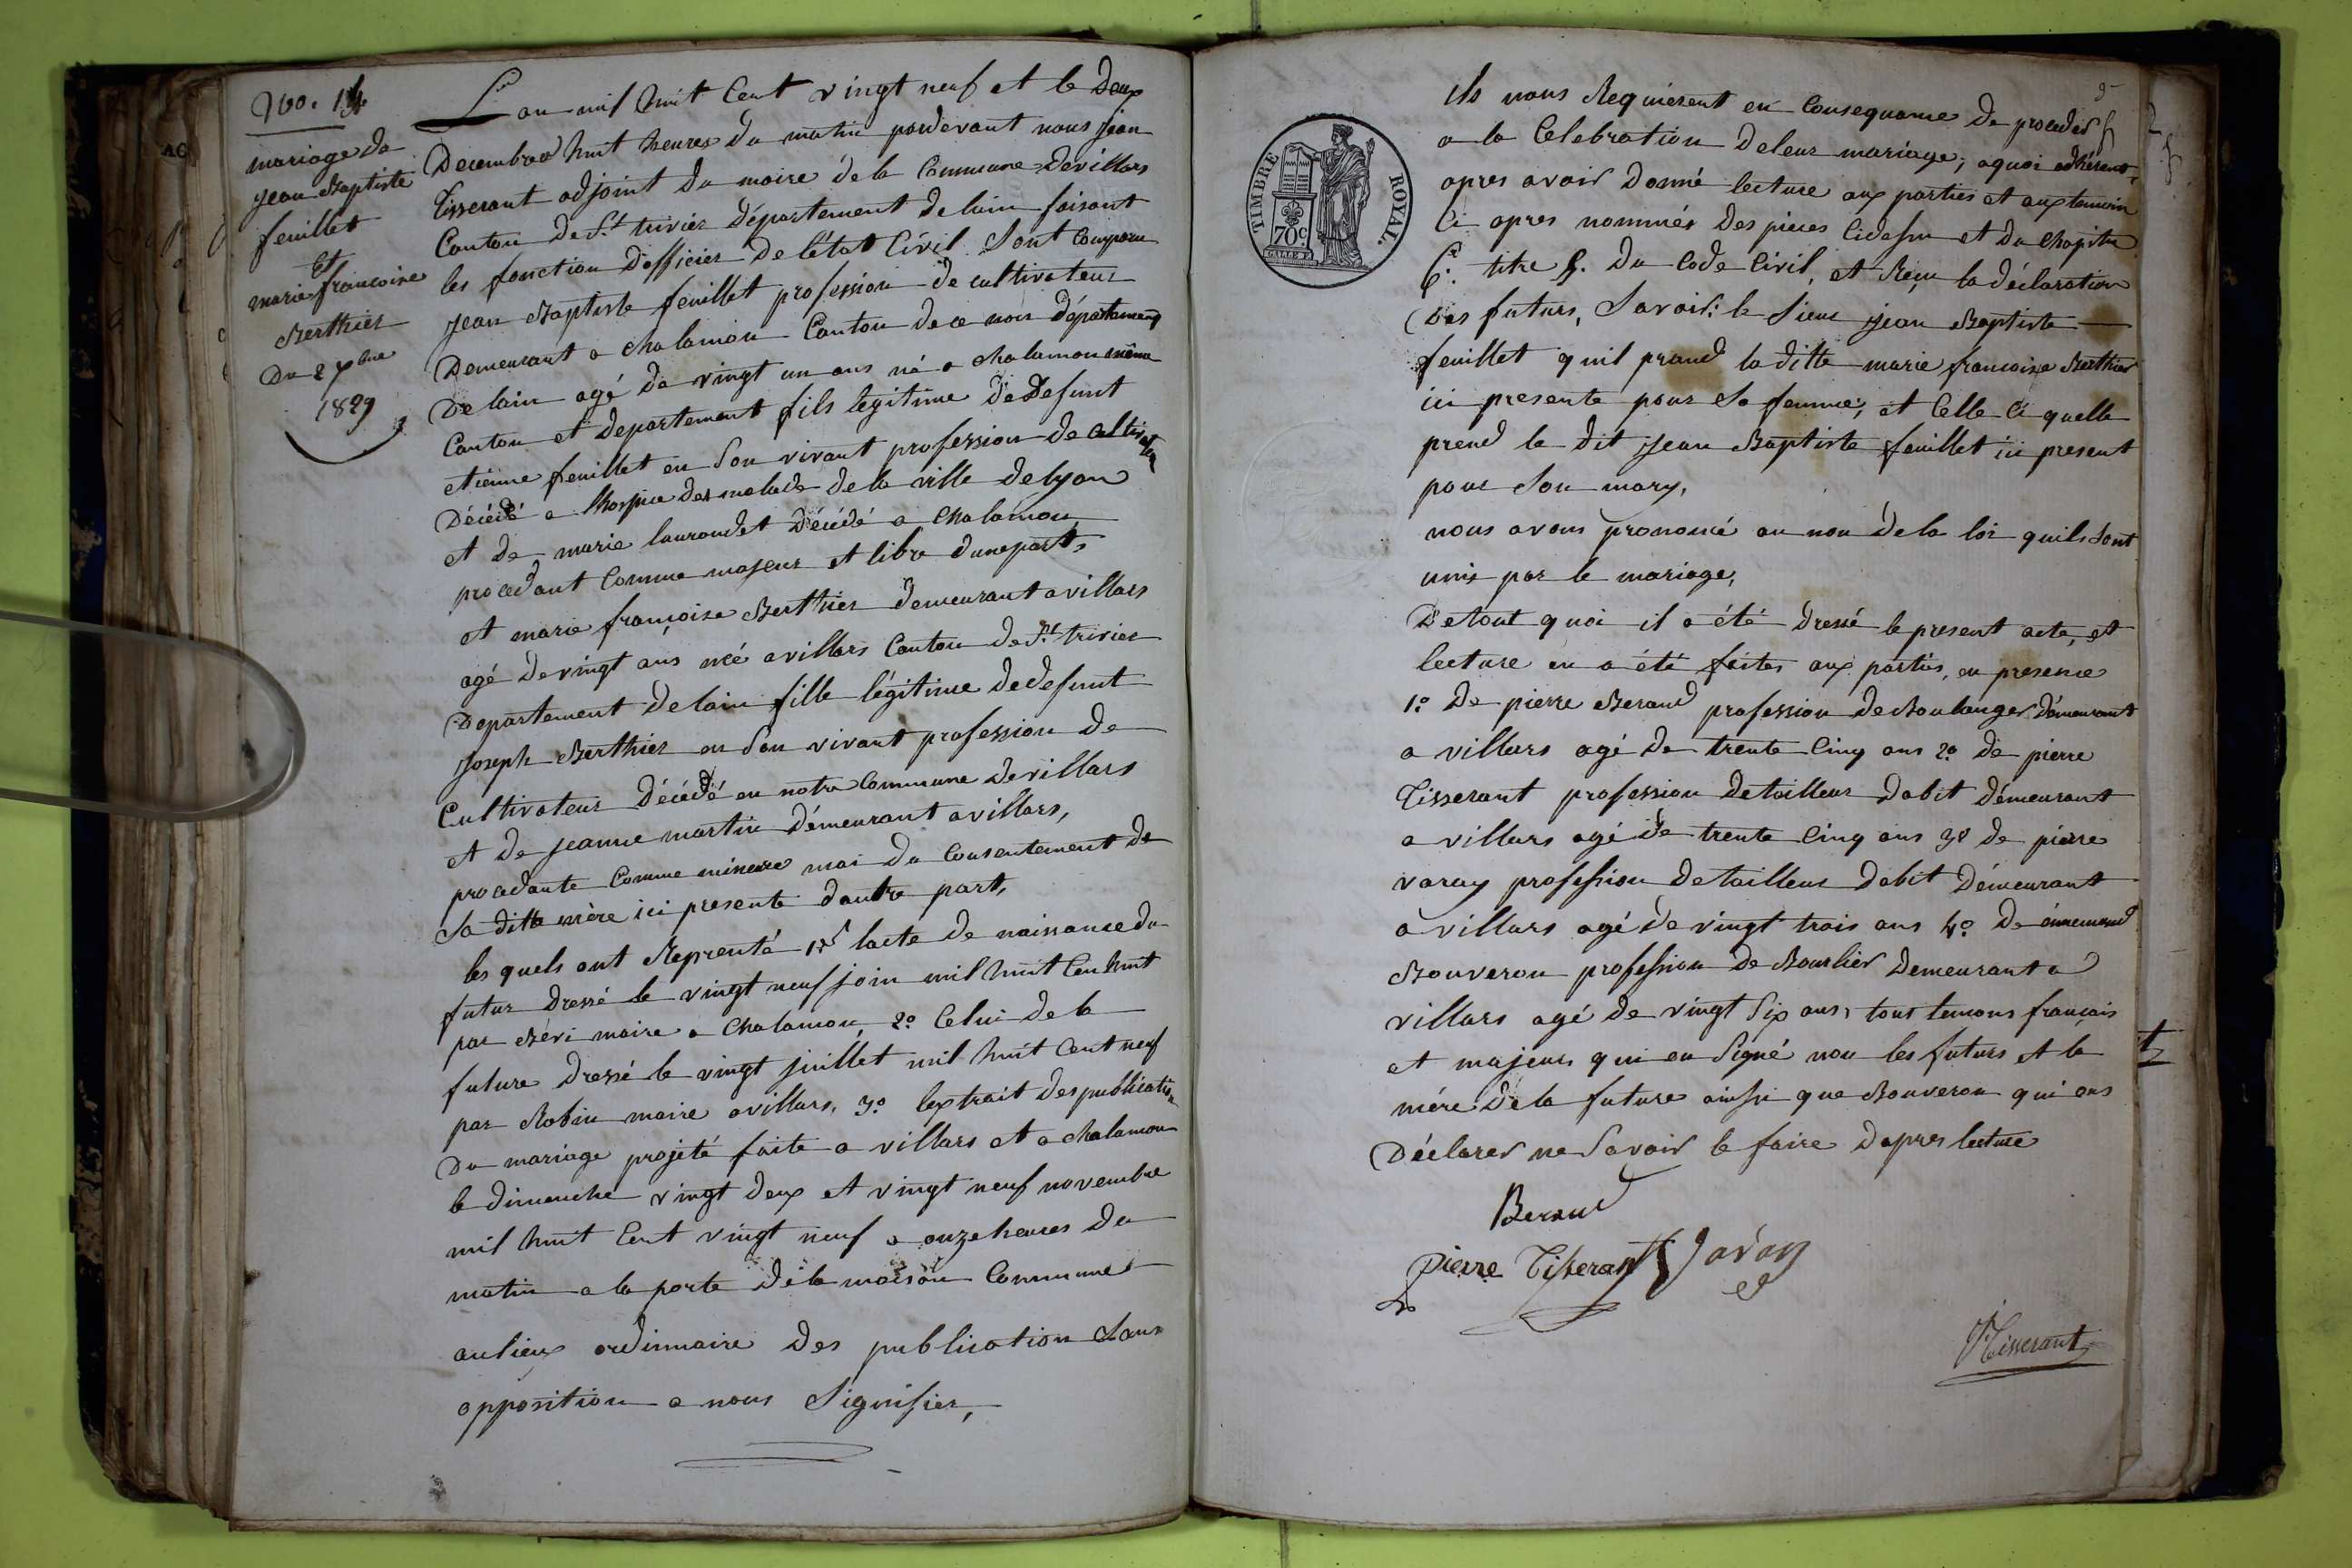 No. 14
mariage de
jean Baptiste
feuillet
Et
marie francoise
Berthier
Du 2 Xbre
1829
L'an mil huit Cent vingt neuf et le Deux
Decembre huit heures du matin pardevant nous jean
Tisserant adjoint du maire de la Commune de villars
Canton de St. trivier Département de lain faisant
les fonction d'officier de l'état Civil Sont Comparu
jean Baptiste feuillet profession de cultivateur
Demeurant a chalamon Canton de ce nom département
De lain agé de vingt un ans né a chalamon même
Canton et departement fils legitime de Defunt
etienne feuillet en Son vivant profession de cultivateur
Décédé a lhospice des malade de la ville de lyon
et de marie laurandet Décédé a chalamon
procedant Comme majeur et libre dune part,
et marie françoise Berthier demeurant a villars
agé de vingt ans née a villars Canton de St. trivier
Departement de lain fille légitime de defunt
Joseph Berthier en Son vivant profession de
Cultivateur décédé en notre Commune de villars
et de jeanne martin démeurant a villars,
procedante Comme mineure mai du Consentement de
Sa ditte mère ici presente dautre part,
les quels ont Reprenté 1° lacte de naissance du
futur dressé le vingt neuf join mil huit Cen huit
par Beri maire a Chalamon, 2° Celui de la
future dressé le vingt juillet mil huit Cent neuf
par Robin maire a villars, 3° lextrait des publication
Du mariage projeté faite a villars et a chalamon
le dimanche vingt deux et vingt neuf novembre
mil huit Cent vingt neuf a onze heures du
matin a la porte de la maison Commune
au lieux ordinnaire des publication Sans
opposition a nous Signifier,
TIMBRE ROYAL.
70c
ils nous Requierent en Consequance de proceder
a la Celebration de leur mariage, a quoi adhérent,
apres avoir donné lecture aux parties et aux temoin
Ci apres nommés des pieces Cidessu et du chapitre
6. titre 5. Du Code Civil, et Reçu la déclaration
Des futurs, Savoir: le Sieur jean Baptiste
feuillet quil prand la ditte marie françoise Berthier
ici presente pour Sa femme, et Celle Ci quelle
prend le dit jean Baptiste feuillet ici present
pour Son mary,
nous avons prononcé au nom de la loi quils Sont
unis par le mariage,
De tout quoi il a été dressé le present acte, et
lecture en a été faites aux partiés, en presence
1° De pierre Beraud profession de Boulanger démeurant
a villars agé de trente Cinq ans 2° de pierre
Tisserant profession de tailleur dabit démeurant
a villars agé de trente Cinq ans 3° de pierre
varay profession de tailleur dabit Démeurant
a villars agé de vingt trois ans 4° De énnemond
Bouveron profession de Bourlier Demeurant a
villars agé de vingt Six ans, tous temons français
et majeurs qui on Signé non les futurs et la
mére de la future ainsi que Bouveron qui ons
Déclarer ne Savoir le faire dapres lecture
Beraud
Pierre Tisserant Varay
Tisserant